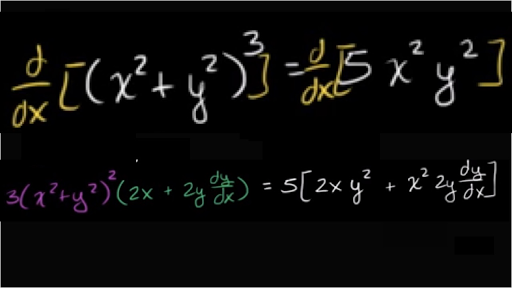 d/dx [(x² + y²)³] = d/dx [5 x² y²]
3(x² + y²)² (2x + 2y dy/dx) = 5[2x y² + x² 2y dy/dx]